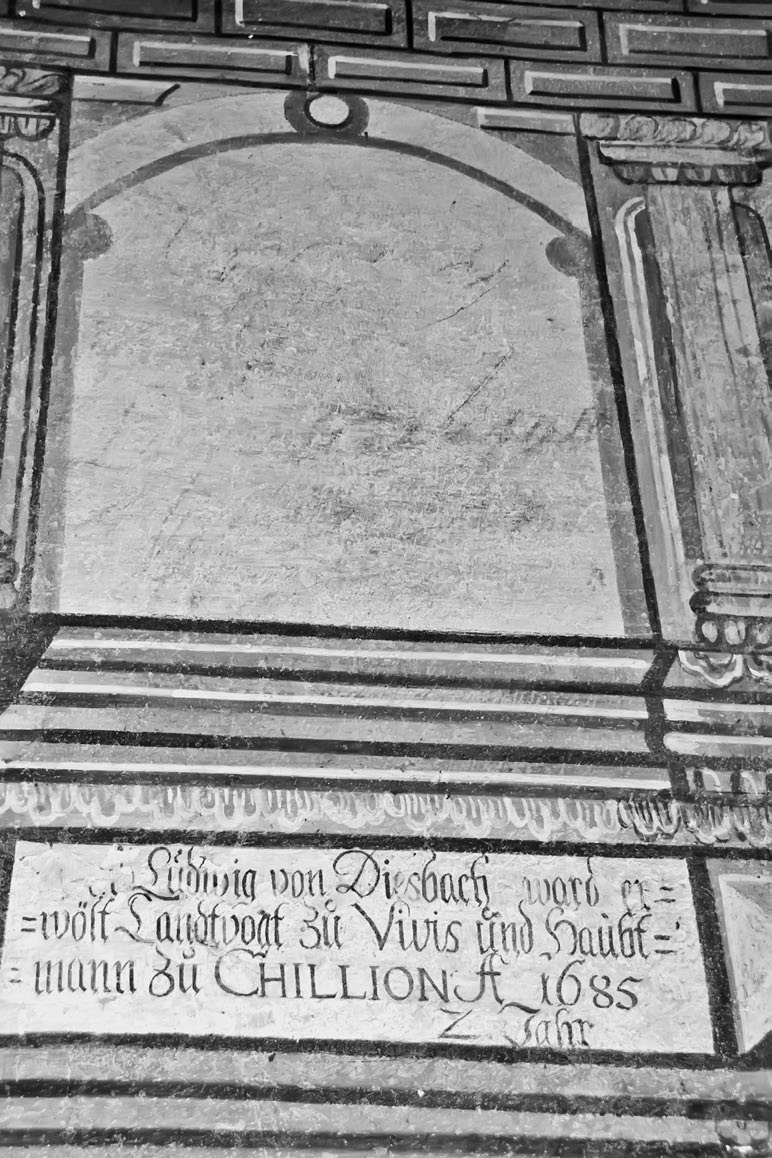 Lüdwig von Diesbach ward er=
=wölt Landtvogt zü Vivis ünd Haübt=
=mann zü CHILLION A 1685
Z Jahr